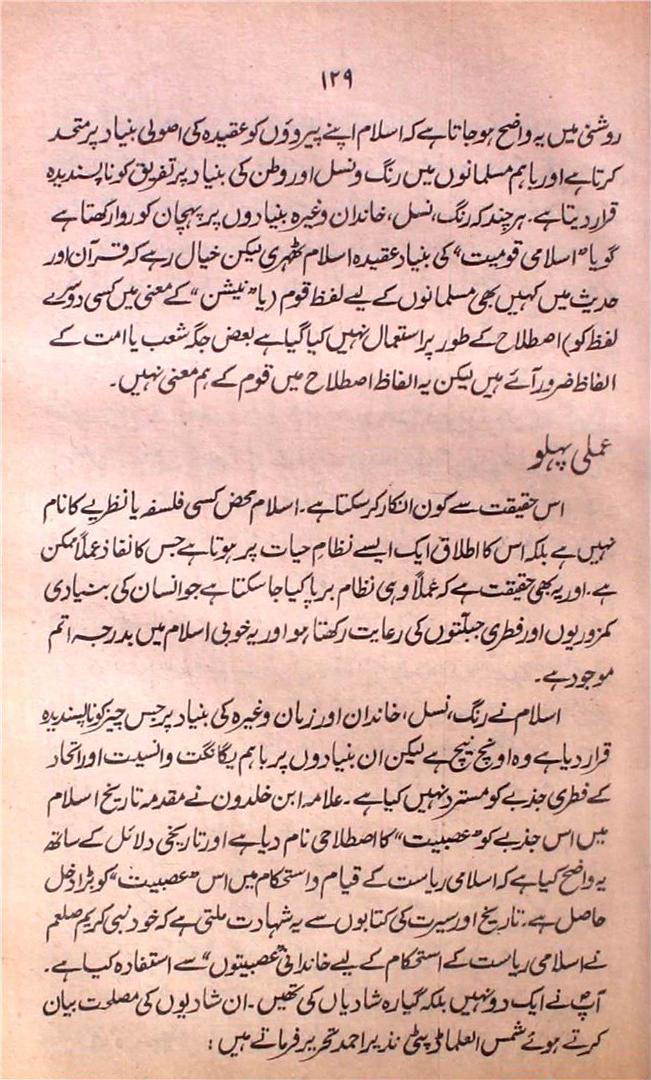 ۱۲۹
روشنی میں یہ واضح ہو جاتا ہے کہ اسلام اپنے پیروؤں کو عقیدہ کی اصولی بنیاد پر متحد
کرتا ہے اور باہم مسلمانوں میں رنگ و نسل اور وطن کی بنیاد پر تفریق کو ناپسندیدہ
قرار دیتا ہے۔ ہر چند کہ رنگ، نسل، خاندان وغیرہ بنیادوں پر پہچان کو روا رکھتا ہے
گویا "اسلامی قومیت" کی بنیاد عقیدہ اسلام ٹھہری لیکن خیال رہے کہ قرآن اور
حدیث میں کہیں بھی مسلمانوں کے لیے لفظ قوم (یا "نیشن" کے معنی میں کسی دوسرے
لفظ کو) اصطلاح کے طور پر استعمال نہیں کیا گیا ہے بعض جگہ شعب یا امت کے
الفاظ ضرور آئے ہیں لیکن یہ الفاظ اصطلاح میں قوم کے ہم معنی نہیں۔
عملی پہلو
اس حقیقت سے کون انکار کر سکتا ہے۔ اسلام محض کسی فلسفہ یا نظریے کا نام
نہیں ہے بلکہ اس کا اطلاق ایک ایسے نظام حیات پر ہوتا ہے جس کا نفاذ عملاً ممکن
ہے۔ اور یہ بھی حقیقت ہے کہ عملاً وہی نظام برپا کیا جا سکتا ہے جو انسان کی بنیادی
کمزوریوں اور فطری جبلّتوں کی رعایت رکھتا ہو اور یہ خوبی اسلام میں بدرجہ اتم
موجود ہے۔
اسلام نے رنگ، نسل، خاندان اور زبان وغیرہ کی بنیاد پر جس چیز کو ناپسندیدہ
قرار دیا ہے وہ اونچ نیچ ہے لیکن ان بنیادوں پر باہم یگانگت و انسیت اور اتحاد
کے فطری جذبے کو مسترد نہیں کیا ہے۔ علامہ ابن خلدون نے مقدمہ تاریخ اسلام
میں اس جذبے کو "عصبیت" کا اصطلاحی نام دیا ہے اور تاریخی دلائل کے ساتھ
یہ واضح کیا ہے کہ اسلامی ریاست کے قیام و استحکام میں اس "عصبیت" کو بڑا دخل
حاصل ہے۔ تاریخ اور سیرت کی کتابوں سے یہ شہادت ملتی ہے کہ خود نبی کریم صلعم
نے اسلامی ریاست کے استحکام کے لیے خاندانی "عصبیتوں" سے استفادہ کیا ہے۔
آپؐ نے ایک دو نہیں بلکہ گیارہ شادیاں کی تھیں۔ ان شادیوں کی مصلحت بیان
کرتے ہوئے شمس العلما ڈپٹی نذیر احمد تحریر فرماتے ہیں: